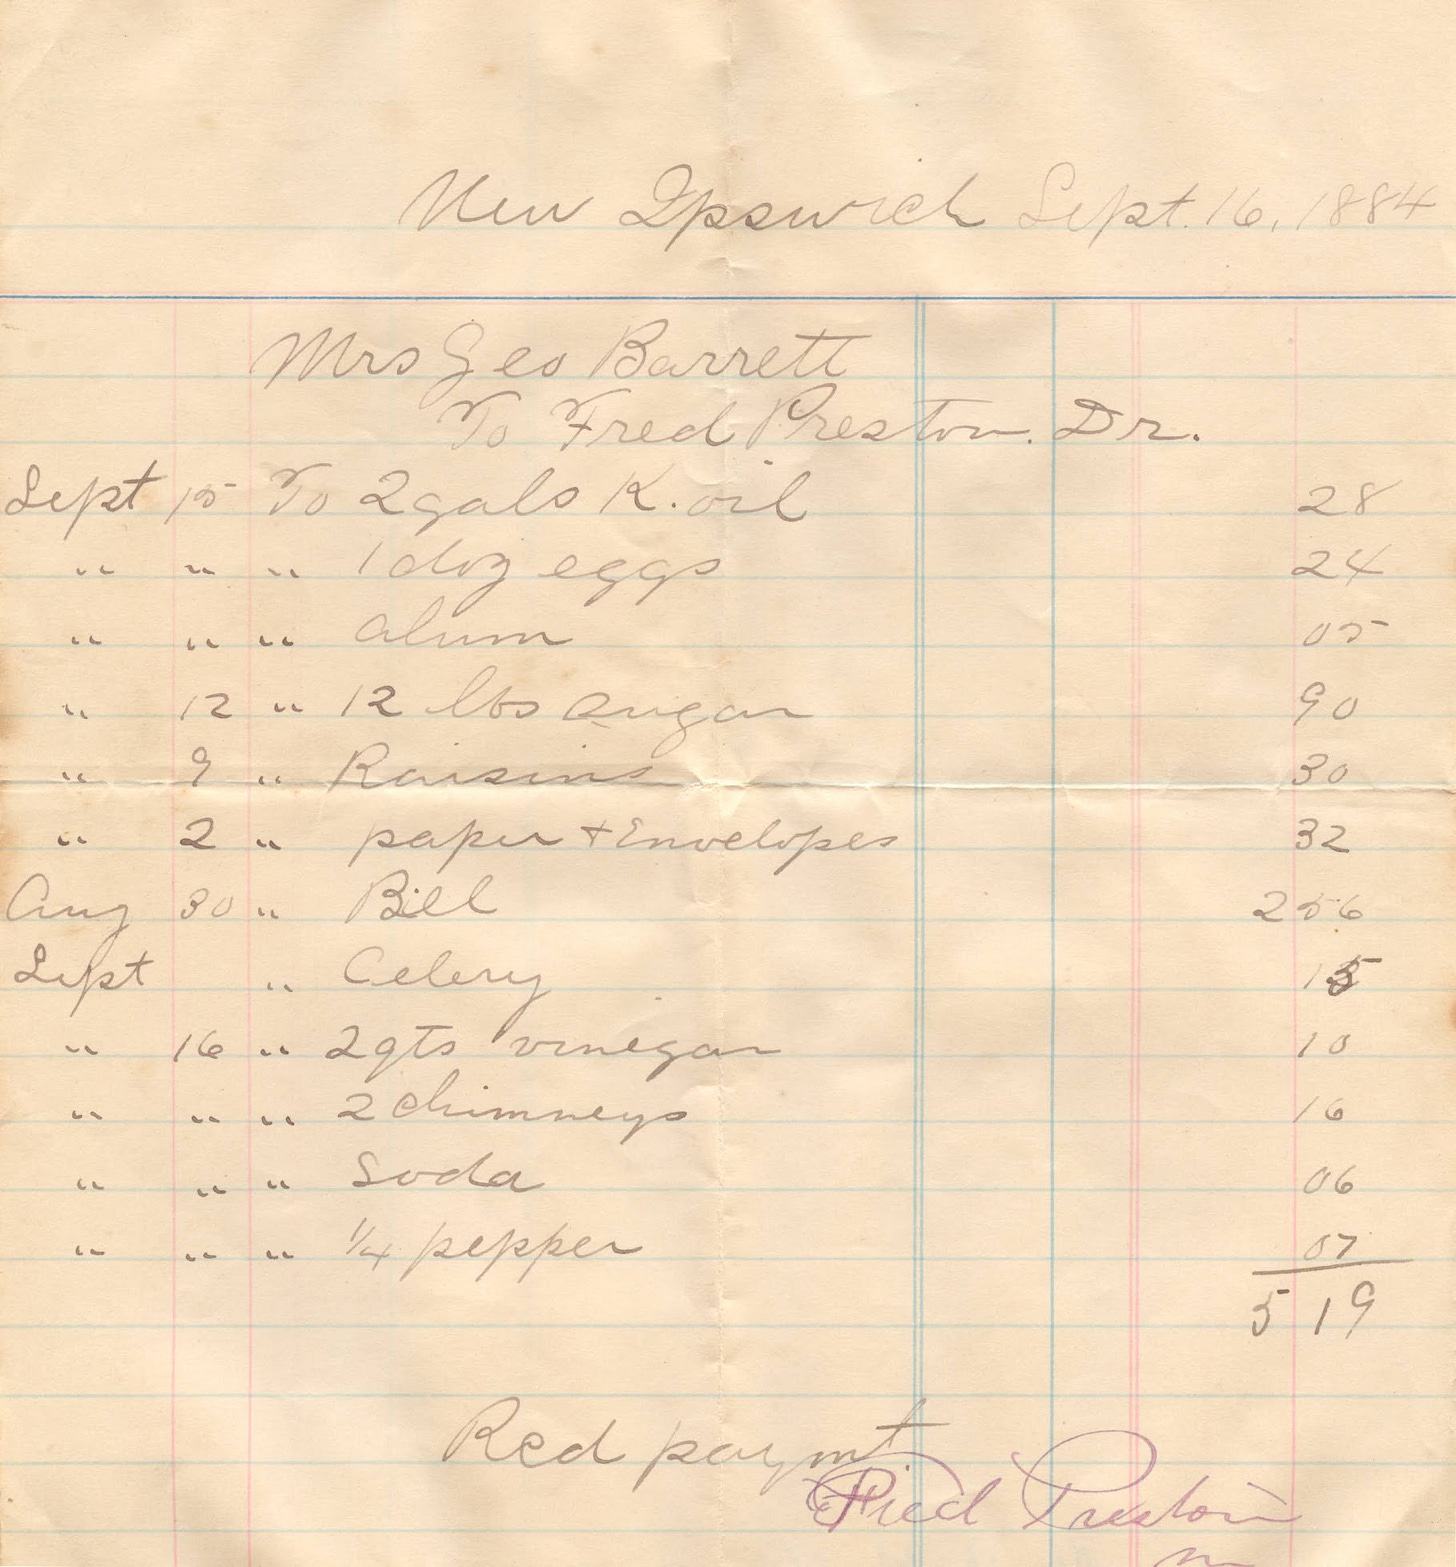 New Ipswich Sept. 16, 1884
Mrs Geo Barrett
To Fred Preston. Dr.
Sept 15 To 2 gals K. oil 28
" " " 1 doz eggs 24
" " " alum 05
" 12 " 12 lbs sugar 90
" 9 " Raisins 30
" 2 " paper + Envelopes 32
Aug 30 " Bill 2 56
Sept " Celery 15
" 16 " 2 qts vinegar 10
" " " 2 Chimneys 16
" " " Soda 06
" " " 1/4 pepper 07
5 19
Recd paymt.
Fred Preston